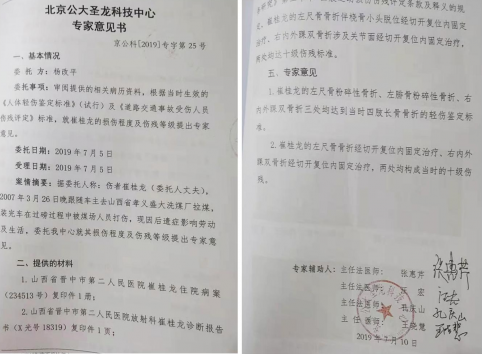 北京公大圣龙科技中心
专家意见书
京公科[2019]专字第25号
一、基本情况
委托人：杨改平
委托事项：审阅提供的相关病历资料，根据当时生效的
《人体轻伤鉴定标准》（试行）及《道路交通事故受伤人员
伤残评定》标准，就崔桂龙的损伤程度及伤残等级提出专家
意见。
委托日期：2019年7月5日
受理日期：2019年7月5日
案情摘要：据委托人称：伤者崔桂龙（委托人丈夫），
2007年3月26日晚跟随车主去山西省孝义盛大洗煤厂拉煤，
装完车在过磅过程中被煤场人员打伤，现因后遗症影响劳动
及生活，委托我中心就其损伤程度及伤残等级提出专家意
见。
二、提供的材料
1.山西省晋中市第二人民医院崔桂龙住院病案
（234513号）复印件1册；
2.山西省晋中市第二人民医院放射科崔桂龙诊断报告
书（X光号18319）复印件1页；
伤残评定条款及释义的规
定，崔桂龙的左尺骨骨折伴桡骨小头脱位经切开复位内固定
治疗、右内外踝双骨折涉及关节面经切开复位内固定治疗，
两处均达十级伤残标准。
五、专家意见
1.崔桂龙的左尺骨粉碎性骨折、左腓骨粉碎性骨折、右
内外踝双骨折三处均达到当时四肢长骨骨折的轻伤鉴定标
准。
2.崔桂龙的左尺骨骨折经切开复位内固定治疗、右内外
踝双骨折经切开复位内固定治疗，两处均构成当时的十级伤
残。
专家辅助人：主任法医师：张惠芹
主任法医师：汪宏
主任法医师：孔庆山
主任医师：王晓慧
2019年7月10日